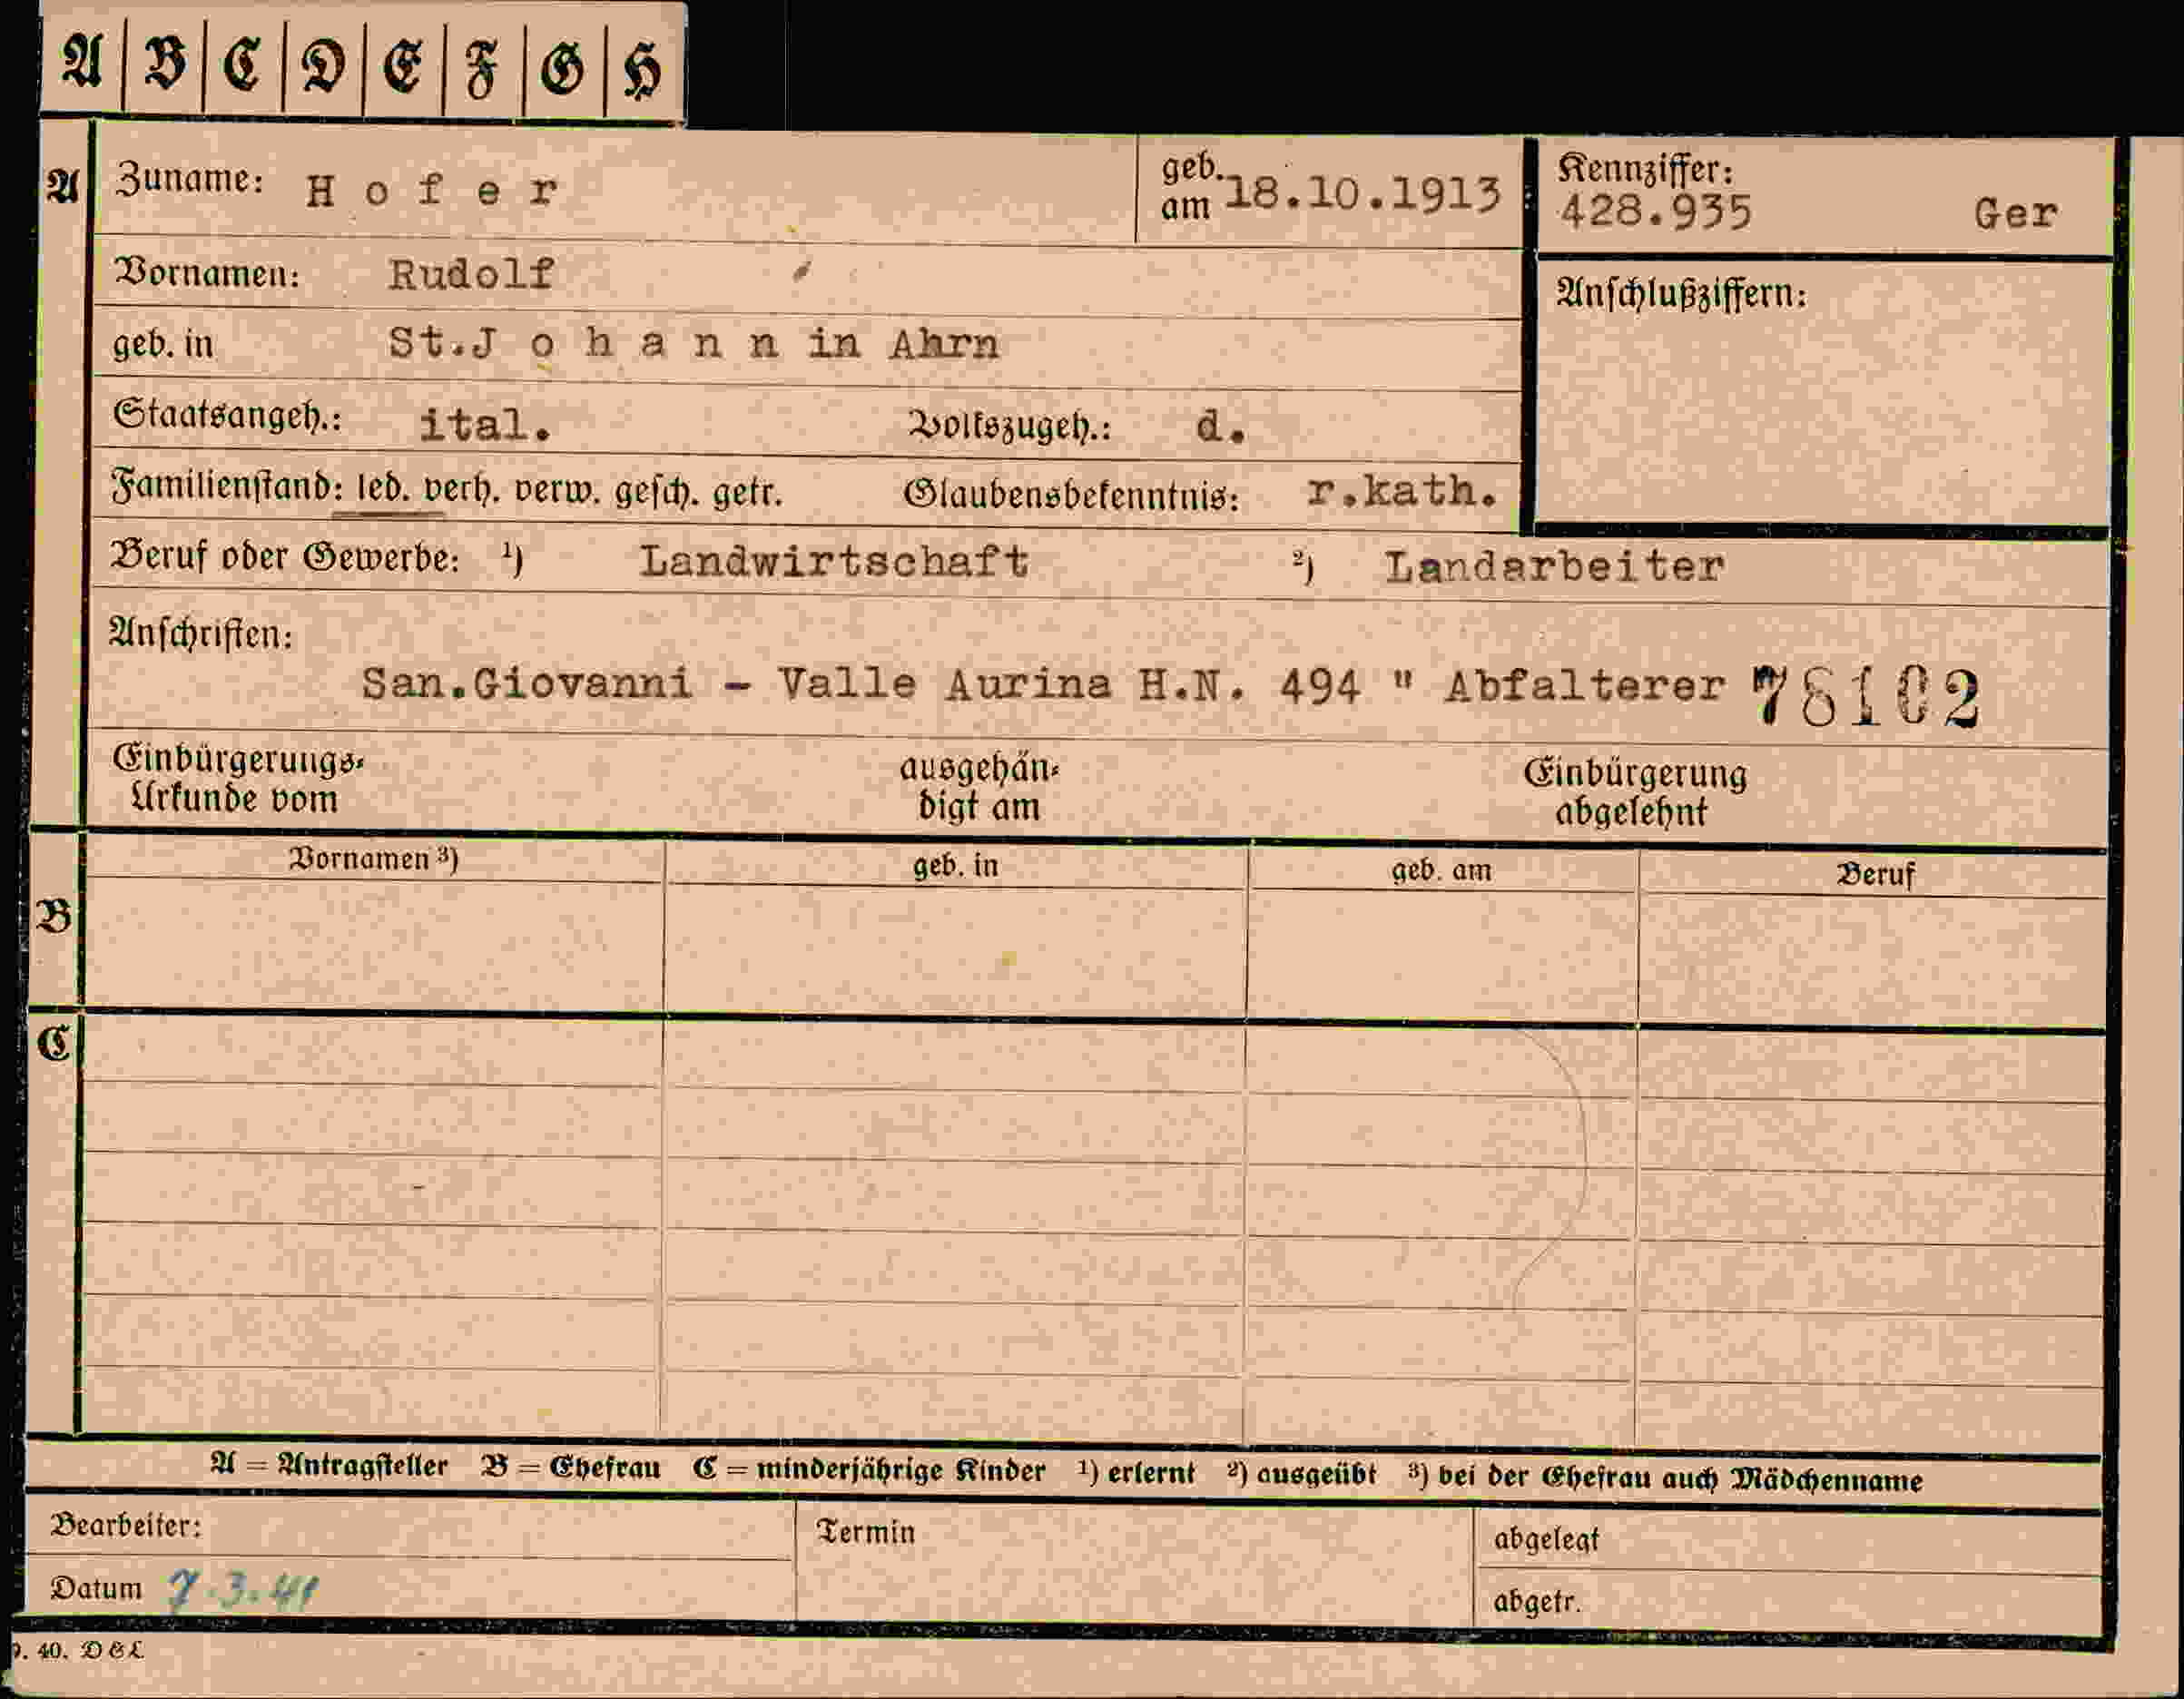 A B C D E F G H
A Zuname: H o f e r geb. am 18.10.1913 Kennziffer: 428.935 Ger
Vornamen: Rudolf Anschlußziffern:
geb. in St.J o h a n n in Ahrn
Staatsangeh.: ital. Volkszugeh.: d.
Familienstand: led. verh. verw. gesch. getr. Glaubensbekenntnis: r.kath.
Beruf oder Gewerbe: ¹) Landwirtschaft ²) Landarbeiter
Anschriften:
San.Giovanni - Valle Aurina H.N. 494 " Abfalterer 78102
Einbürgerungs- ausgehän- Einbürgerung
Urkunde vom digt am abgelehnt
B Vornamen ³) geb. in geb. am Beruf
C
A = Antragsteller B = Ehefrau C = minderjährige Kinder ¹) erlernt ²) ausgeübt ³) bei der Ehefrau auch Mädchenname
Bearbeiter: Termin abgelegt
Datum 7.3.41 abgetr.
40. D&L